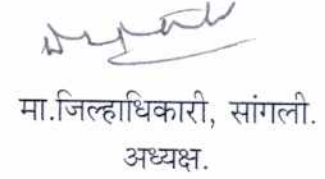 मा.जिल्हाधिकारी, सांगली.
अध्यक्ष.